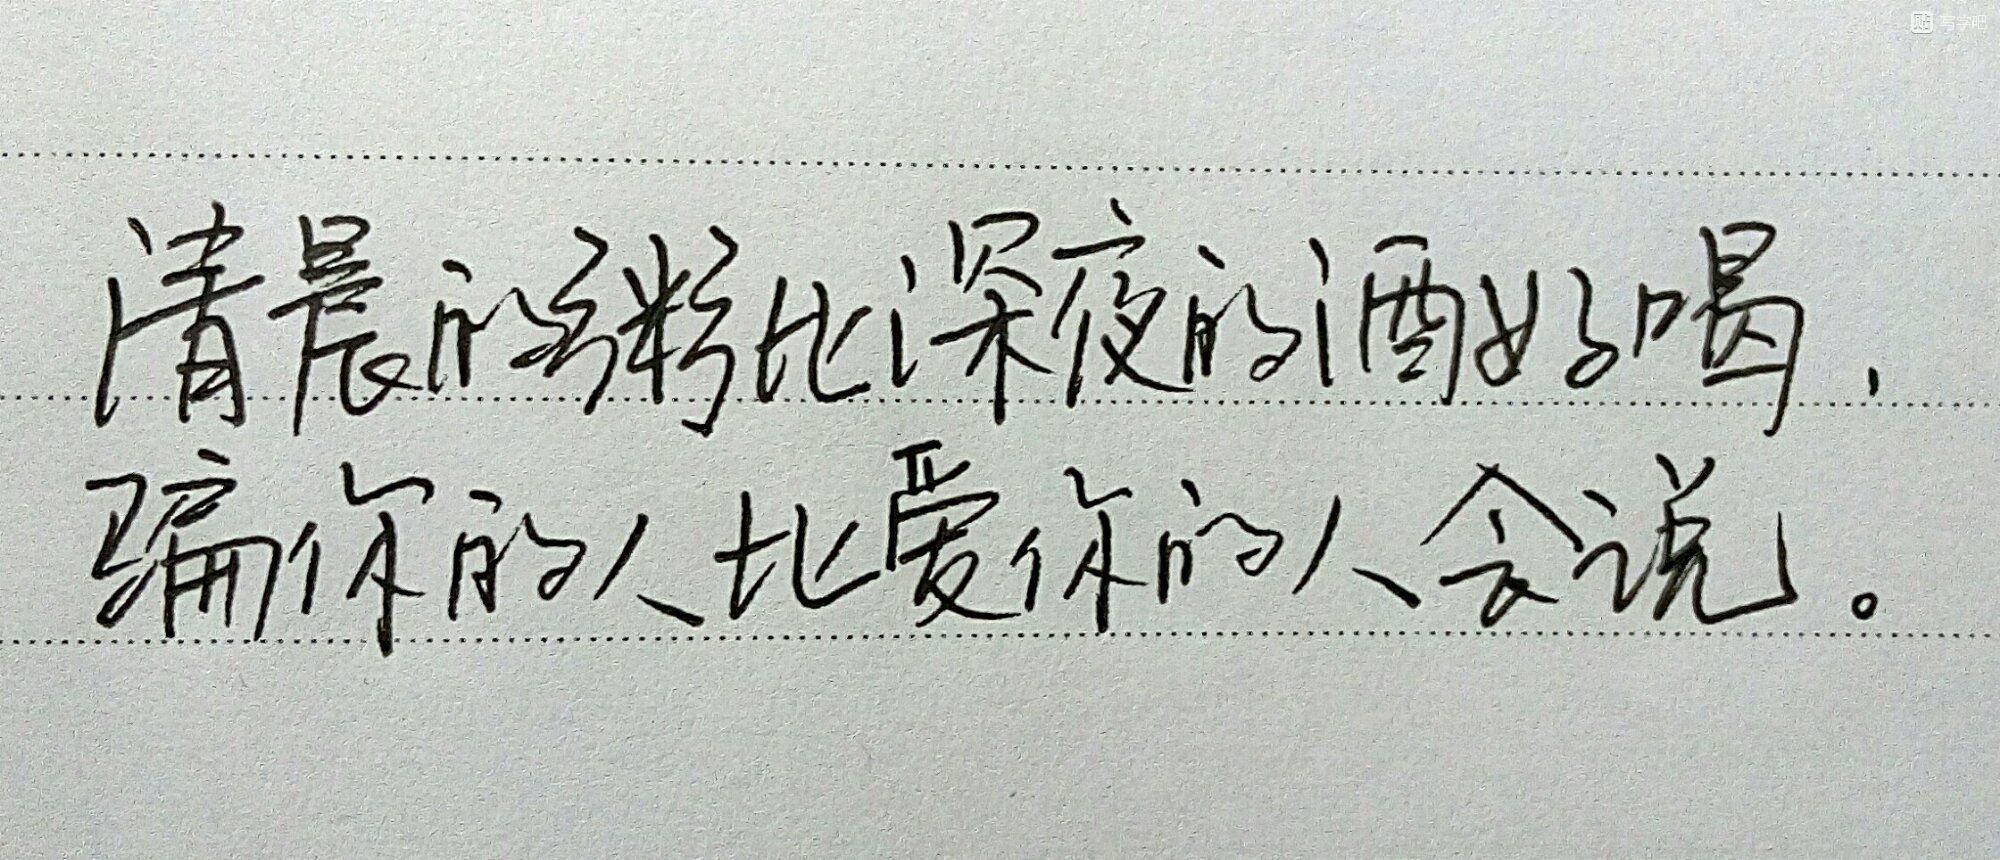 贴 写字吧
清晨的粥比深夜的酒好喝，
骗你的人比爱你的人会说。